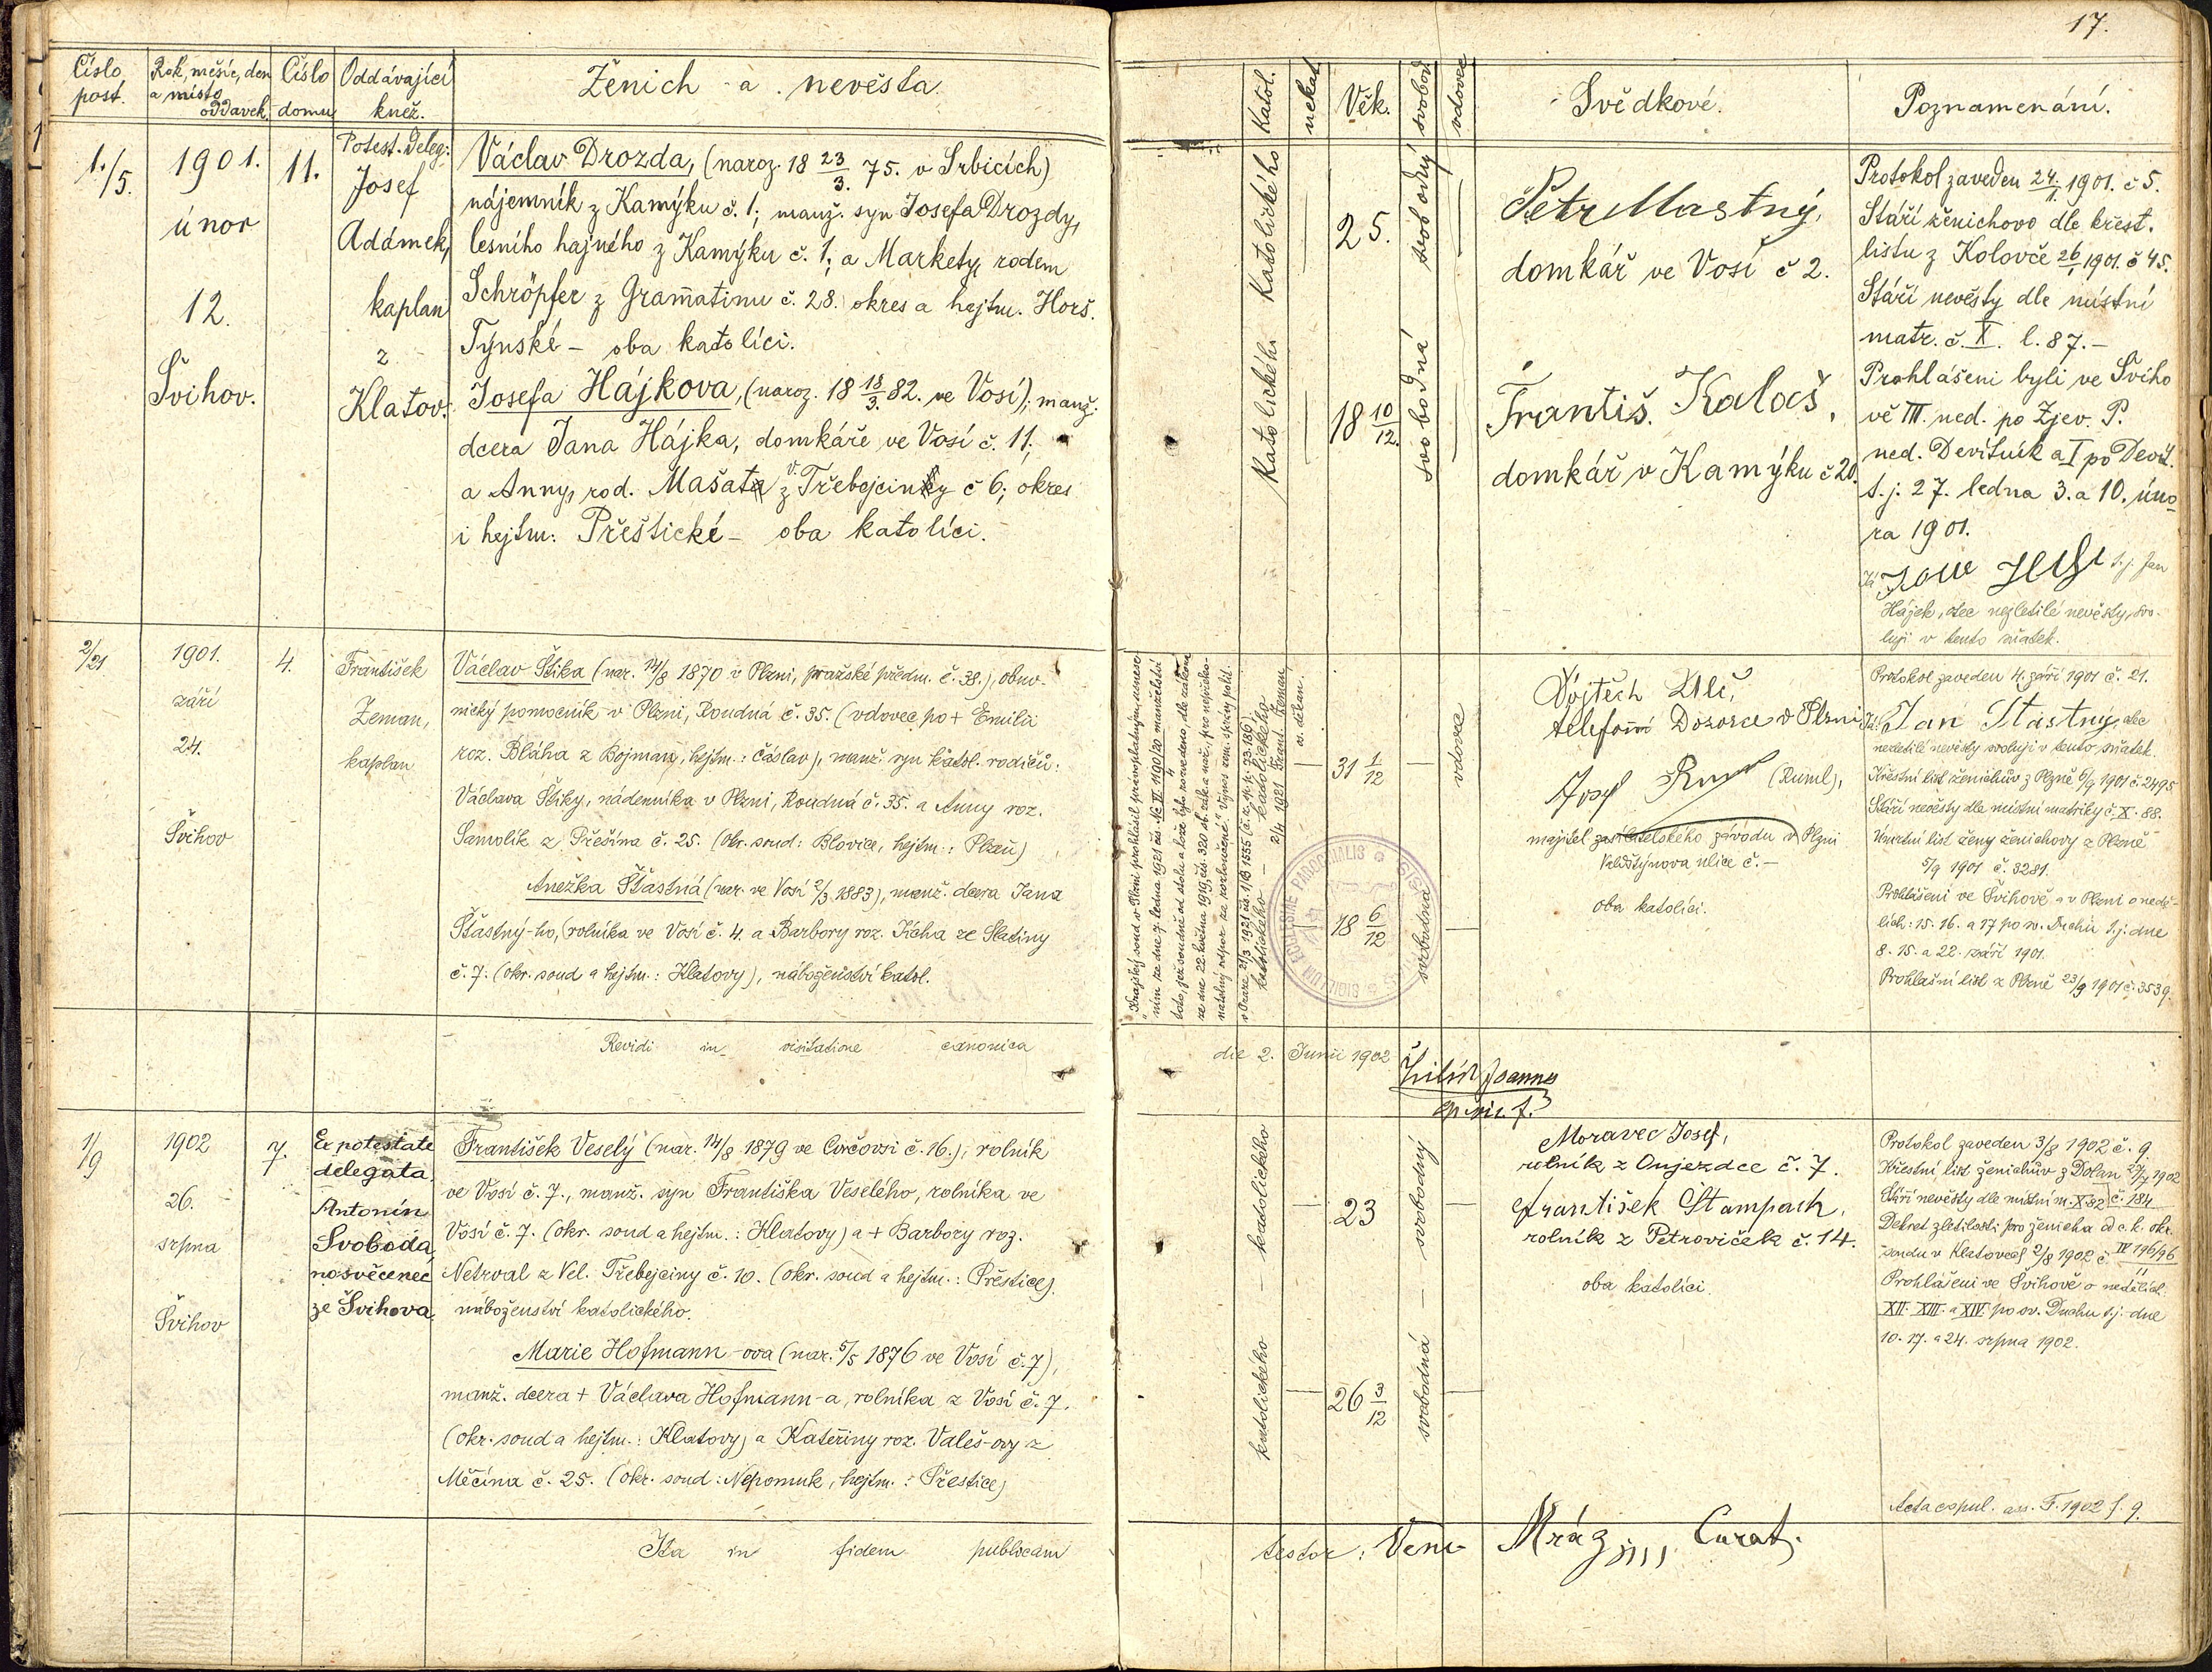 17.
Číslo post.
Rok, měsíc, den a místo oddavek.
Číslo domu
Oddávající kněz.
Ženich a nevěsta.
Katol.
nekat.
Věk.
svobod.
vdovec
Svědkové.
Poznamenání.
1./5.
1901.
únor
12.
Švihov.
11.
Potest. deleg:
Josef
Adámek,
kaplan
z
Klatov.
Václav Drozda, (naroz. 18 23/3. 75. v Srbicích)
nájemník z Kamýku č. 1; manž. syn Josefa Drozdy,
lesního hajného z Kamýku č. 1; a Markety, rodem
Schröpfer z Gramatinu č. 28. okres a hejtm. Horš.
Týnské – oba katolíci.
Josefa Hájkova, (naroz. 18 18/3. 82. ve Vosí); manž.
dcera Jana Hájka, domkáře ve Vosí č. 11;
a Anny, rod. Mašata z V. Třebejciny č 6; okres
i hejtm. Přeštické – oba katolíci.
Katolického
Katolického
25.
18 10/12.
svobodný
svobodná
Petr Mastný,
domkář ve Vosí č 2.
Františ. Kalaš,
domkář v Kamýku č 20.
Protokol zaveden 24./1. 1901. č 5.
Stáří ženichovo dle křest.
listu z Koloveče 26/1 1901. č 45.
Stáří nevěsty dle místní
matr. č. X. l. 87. –
Prohlášeni byli ve Šviho
vě III. ned. po Zjev. P.
ned. Devítník a I po Devít.
t. j. 27. ledna 3. a 10. úno
ra 1901.
Já t. j. Jan
Hájek, otec nezletilé nevěsty, svo-
luji v tento sňatek.
2/21
1901.
září
24.
Švihov
4.
František
Zeman,
kaplan
Václav Štika (nar. 14/8 1870 v Plzni, pražské předm. č. 38.), obuv-
nický pomocník v Plzni, Roudná č. 35. (vdovec po + Emilii
roz. Bláha z Bojman, hejtm.: Čáslav), manž. syn katol. rodičů:
Václava Štiky, nádenníka v Plzni, Roudná č. 35. a Anny roz.
Samolík z Přešína č. 25. (okr. soud: Blovice, hejtm.: Plzeň)
Anežka Šťastná (nar. ve Vosí 2/3 1883), manž. dcera Jana
Šťastný-ho, (rolníka ve Vosí č. 4. a Barbory roz. Kícha ze Slatiny
č. 7. (okr. soud a hejtm.: Klatovy), náboženství katol.
"Krajský soud v Plzni prohlásil právoplatným usnese-
ním ze dne 7. ledna 1921 čís. Nc II 1190/20 manželství
toto, jež soudně od stolu a lože bylo rozvedeno, dle zákona
ze dne 22. května 1919, čís. 320 sb. zák. a nař., pro nepřeko-
natelný odpor za rozloučené." Výnos zem. správy polit.
v Praze 21/3 1921 čís. 1/B 1555 (č. z. sp. p. 93.186)
2/4 1921 Frant. Zeman,
os. děkan.
katolického – katolického
31 1/12
18 6/12
vdovec
svobodná
Vojtěch Vlč,
telefonní Dozorce v Plzni
Josef (Ruml),
majitel zasílatelského závodu v Plzni
Valdštýnova ulice č. –
oba katolíci.
Protokol zaveden 4. září 1901 č. 21.
Já: Jan Šťastný, otec
nezletilé nevěsty svoluji v tento sňatek.
Křestní list ženichův z Plzně 6/9 1901 č. 2495
Stáří nevěsty dle místní matriky č. X. 88.
Úmrtní list ženy ženichovy z Plzně
5/9 1901 č. 3281.
Prohlášeni ve Švihově a v Plzni o neděl-
lích: 15. 16. a 17 po sv. Duchu t. j. dne
8. 15. a 22. září 1901.
Prohlašní list z Plzně 23/9 1901 č. 3539.
Revidi in visitatione canonica die 2. Junii 1902
Joannes
1/9
1902
26.
srpna
Švihov
7.
Ex potestate
delegata.
Antonín
Svoboda,
novosvěcenec
ze Švihova
František Veselý (nar. 14/8 1879 ve Curčovsi č. 16.), rolník
ve Vosí č. 7., manž. syn Františka Veselého, rolníka ve
Vosí č. 7. (okr. soud a hejtm.: Klatovy) a + Barbory roz.
Netrval z Vel. Třebejciny č. 10. (okr. soud a hejtm.: Přeštice),
náboženství katolického.
Marie Hofmann-ova (nar. 5/5 1876 ve Vosí č. 7),
manž. dcera + Václava Hofmann-a, rolníka z Vosí č. 7.
(okr. soud a hejtm.: Klatovy) a Kateřiny roz. Valeš-ovy z
Měčína č. 25. (okr. soud: Nepomuk, hejtm.: Přeštice)
katolického – katolického
23
26 3/12
svobodný – svobodná
Moravec Josef,
rolník z Oujezdce č. 7.
František Štampach,
rolník z Petroviček č. 14.
oba katolíci.
Protokol zaveden 3/8 1902 č. 9.
Křestní list ženichův z Dolan 27/7 1902
č. 184
Stáří nevěsty dle místní m. X. 82
Dekret zletilosti pro ženicha od c. k. okr.
soudu v Klatovech 2/8 1902 č. IV 196/96
Prohlášeni ve Švihově o nedělích
XII. XIII. a XIV. po sv. Duchu t. j. dne
10. 17. a 24. srpna 1902.
Acta copul. ass. F. 1902 f. 9.
Ita in fidem publicam testor: Venc. Mráz Curat.